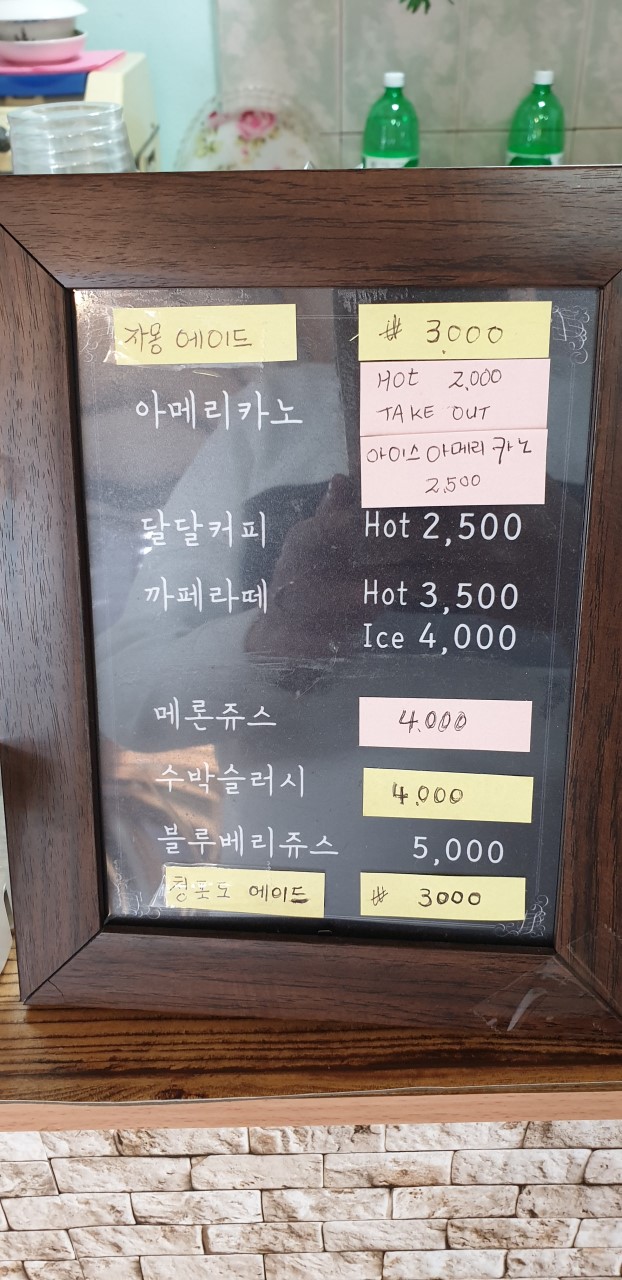 자몽 에이드 ₩ 3,000
아메리카노 HOT 2,000
TAKE OUT
아이스 아메리카노
2,500
달달커피 Hot 2,500
까페라떼 Hot 3,500
Ice 4,000
메론쥬스 4,000
수박슬러시 4,000
블루베리쥬스 5,000
청포도 에이드 ₩ 3000